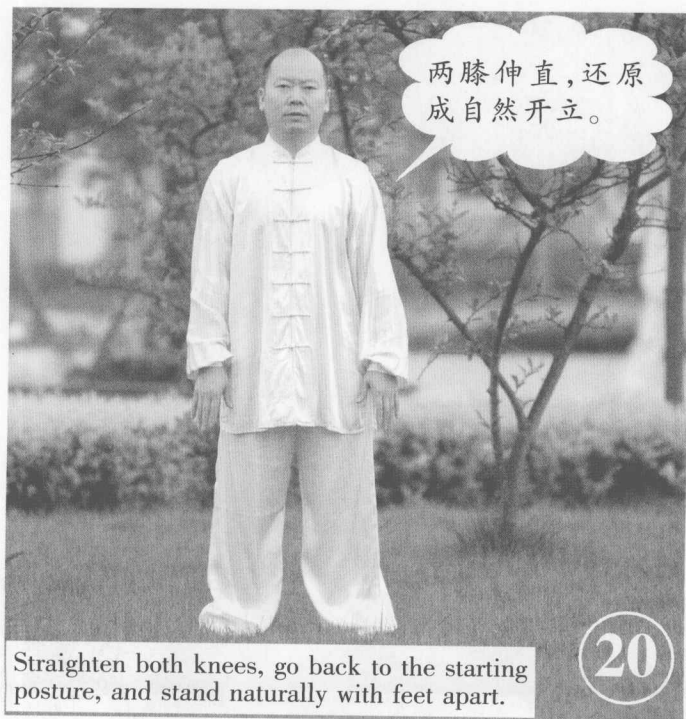 两膝伸直,还原
成自然开立。
Straighten both knees, go back to the starting
posture, and stand naturally with feet apart.
20